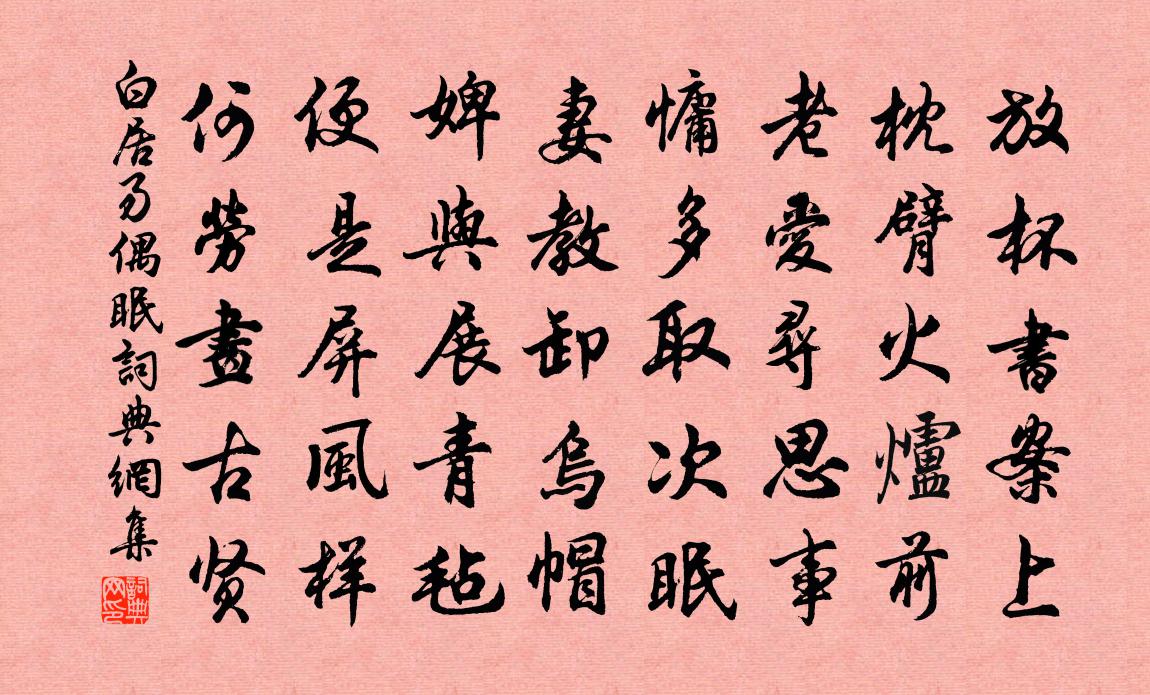 放杯書案上
枕臂火爐前
老愛尋思事
慵多取次眠
妻教卸烏帽
婢與展青毡
便是屏風样
何勞畫古贤
白居易偶眠詞典網集
詞典網印